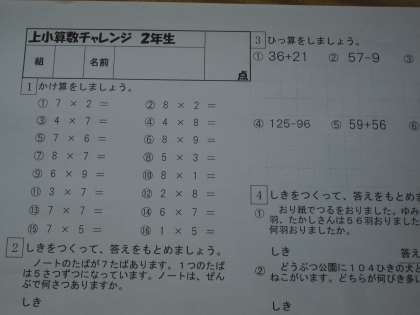 上小算数チャレンジ 2年生
組
名前
点
1 かけ算をしましょう。
① 7 × 2 =
② 8 × 2 =
③ 4 × 7 =
④ 4 × 8 =
⑤ 7 × 6 =
⑥ 8 × 9 =
⑦ 8 × 7 =
⑧ 5 × 3 =
⑨ 6 × 9 =
⑩ 8 × 1 =
⑪ 3 × 7 =
⑫ 2 × 8 =
⑬ 7 × 7 =
⑭ 6 × 7 =
⑮ 7 × 5 =
⑯ 1 × 5 =
2 しきをつくって、答えをもとめましょう。
ノートのたばが7たばあります。1つのたば
は5さつずつになっています。ノートは、ぜん
ぶで何さつありますか。
しき
3 ひっ算をしましょう。
① 36+21
② 57-9
③
④ 125-96
⑤ 59+56
4 しきをつくって、答えをもとめ
① おり紙でつるをおりました。ゆみ
羽、たかしさんは56羽おりました
何羽おりましたか。
しき
答え
② どうぶつ公園に104ひきの犬と
ねこがいます。どちらが何びき多い
しき